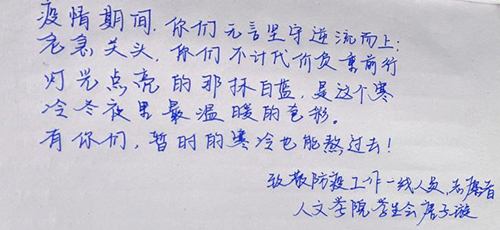 疫情期间,你们无言坚守逆流而上;
危急关头,你们不计代价负重前行
灯光点亮的那抹白蓝,是这个寒
冷冬夜里最温暖的色彩。
有你们,暂时的寒冷也能熬过去!
致敬防疫工作一线人员,志愿者
人文学院学生会 唐子璇